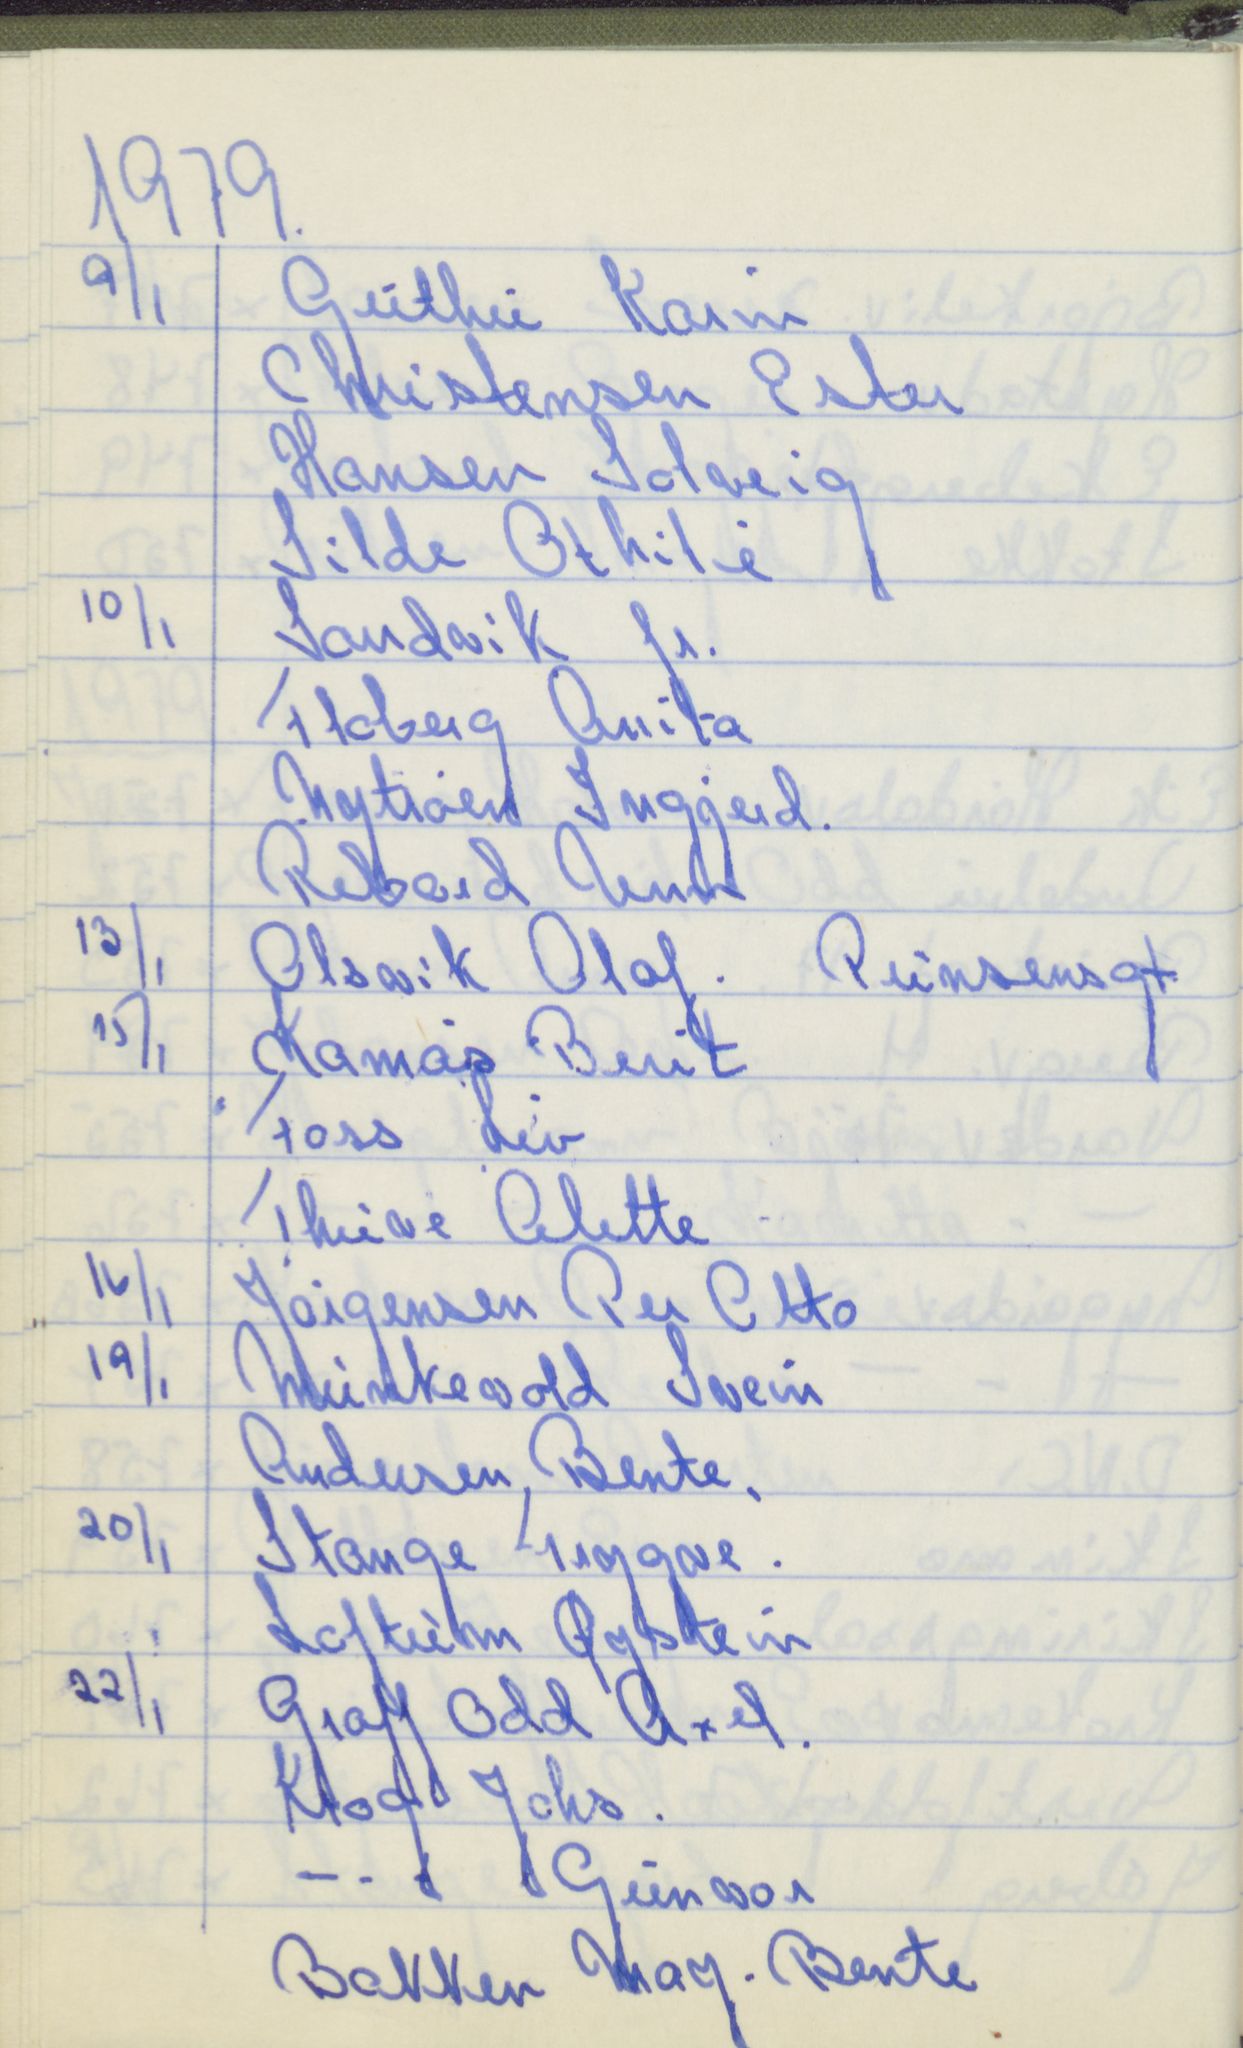 1979.
9/1 Guthii Karin
Christensen Ester
Hansen Solveig
Silde Othilie
10/1 Sandvik fr.
Floberg Anita
Nytrøen Ingjerd.
Rebård Unn
13/1 Olsvik Olaf. Prinsensgt.
15/1 Kamås Berit
Foss Liv
Thrive Alette
16/1 Jørgensen Per Otto
19/1 Munkevold Svein
Andersen, Bente.
20/1 Stange Trygve.
Loftum Øystein
22/1 Graff Odd Axel.
Krog Johs.
--- Gunvor
Bakken May. Bente